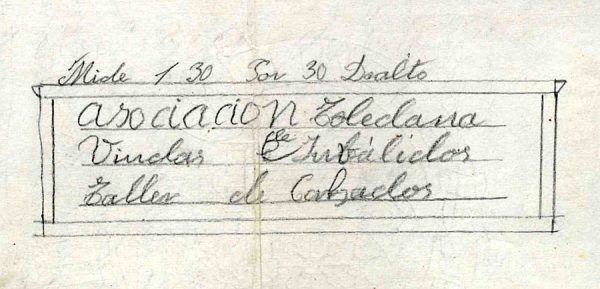 Mide 1 30 Por 30 Dealto
asociacion Toledana
Viudas e Inbálidos
Taller de Calzados